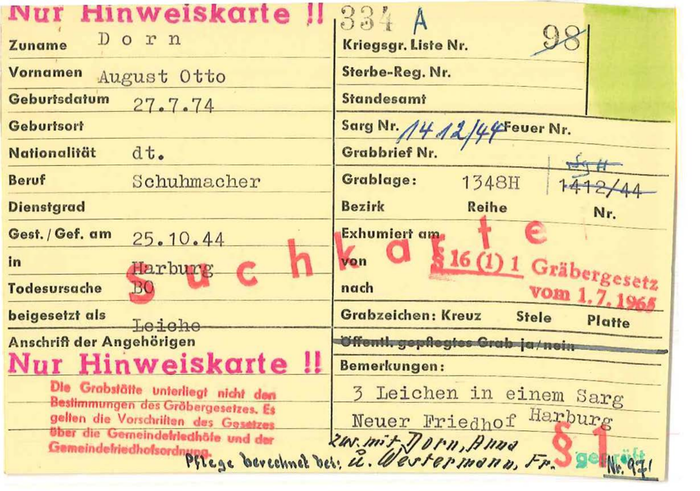 Nur Hinweiskarte !!
334 A
98
Zuname Dorn
Vornamen August Otto
Geburtsdatum 27.7.74
Geburtsort
Nationalität dt.
Beruf Schuhmacher
Dienstgrad
Gest./Gef. am 25.10.44
in Harburg
Todesursache BO
beigesetzt als Leiche
Anschrift der Angehörigen
Nur Hinweiskarte !!
Die Grabstätte unterliegt nicht den
Bestimmungen des Gräbergesetzes. Es
gelten die Vorschriften des Gesetzes
über die Gemeindefriedhöfe und der
Gemeindefriedhofsordnung.
Suchkarte
Kriegsgr. Liste Nr.
Sterbe-Reg. Nr.
Standesamt
Sarg Nr. 1412/44 Feuer Nr.
Grabbrief Nr.
Grablage: 1348H 1412/44
Bezirk Reihe Nr.
Exhumiert am
von
§ 16 (1) 1 Gräbergesetz
vom 1.7.1965
nach
Grabzeichen: Kreuz Stele Platte
Öffentl. gepflegtes Grab ja/nein
Bemerkungen:
3 Leichen in einem Sarg
Neuer Friedhof Harburg
zus. mit Dorn, Anna
u. Westermann, Fr.
§ 1
geprüft
Pflege berechnet bei: Nr. 97!